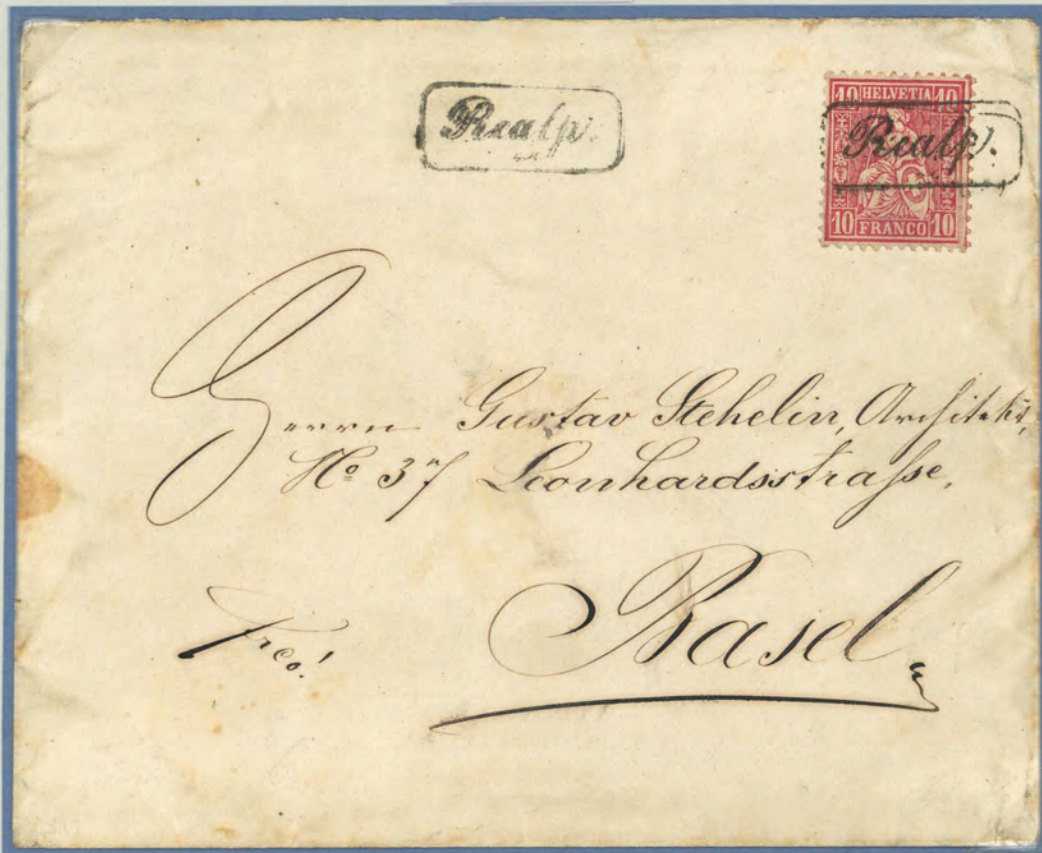 Realp.
10 HELVETIA 10
Realp.
10 FRANCO 10
Herrn Gustav Stehelin, Architekt,
No 37 Leonhardsstrasse,
Basel
frco!